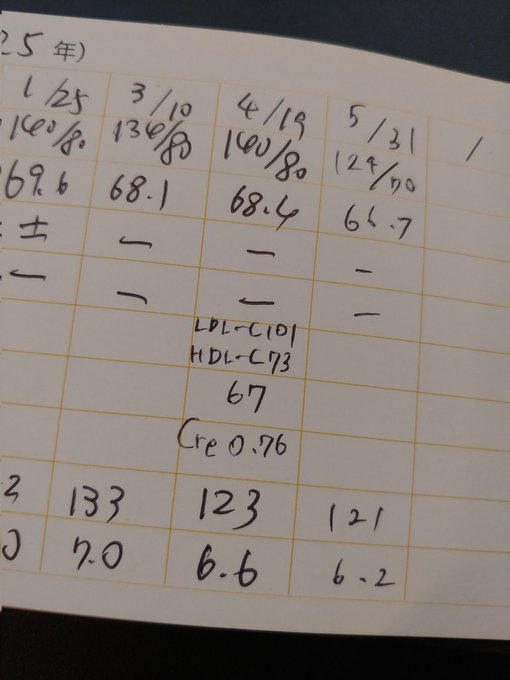 25年)
1/25 3/10 4/19 5/31 /
140/80 136/80 140/80 124/70
69.6 68.1 68.4 66.7
± ー ー ー
ー ー ー ー
LDL-C101
HDL-C73
67
Cre 0.76
133 123 121
7.0 6.6 6.2